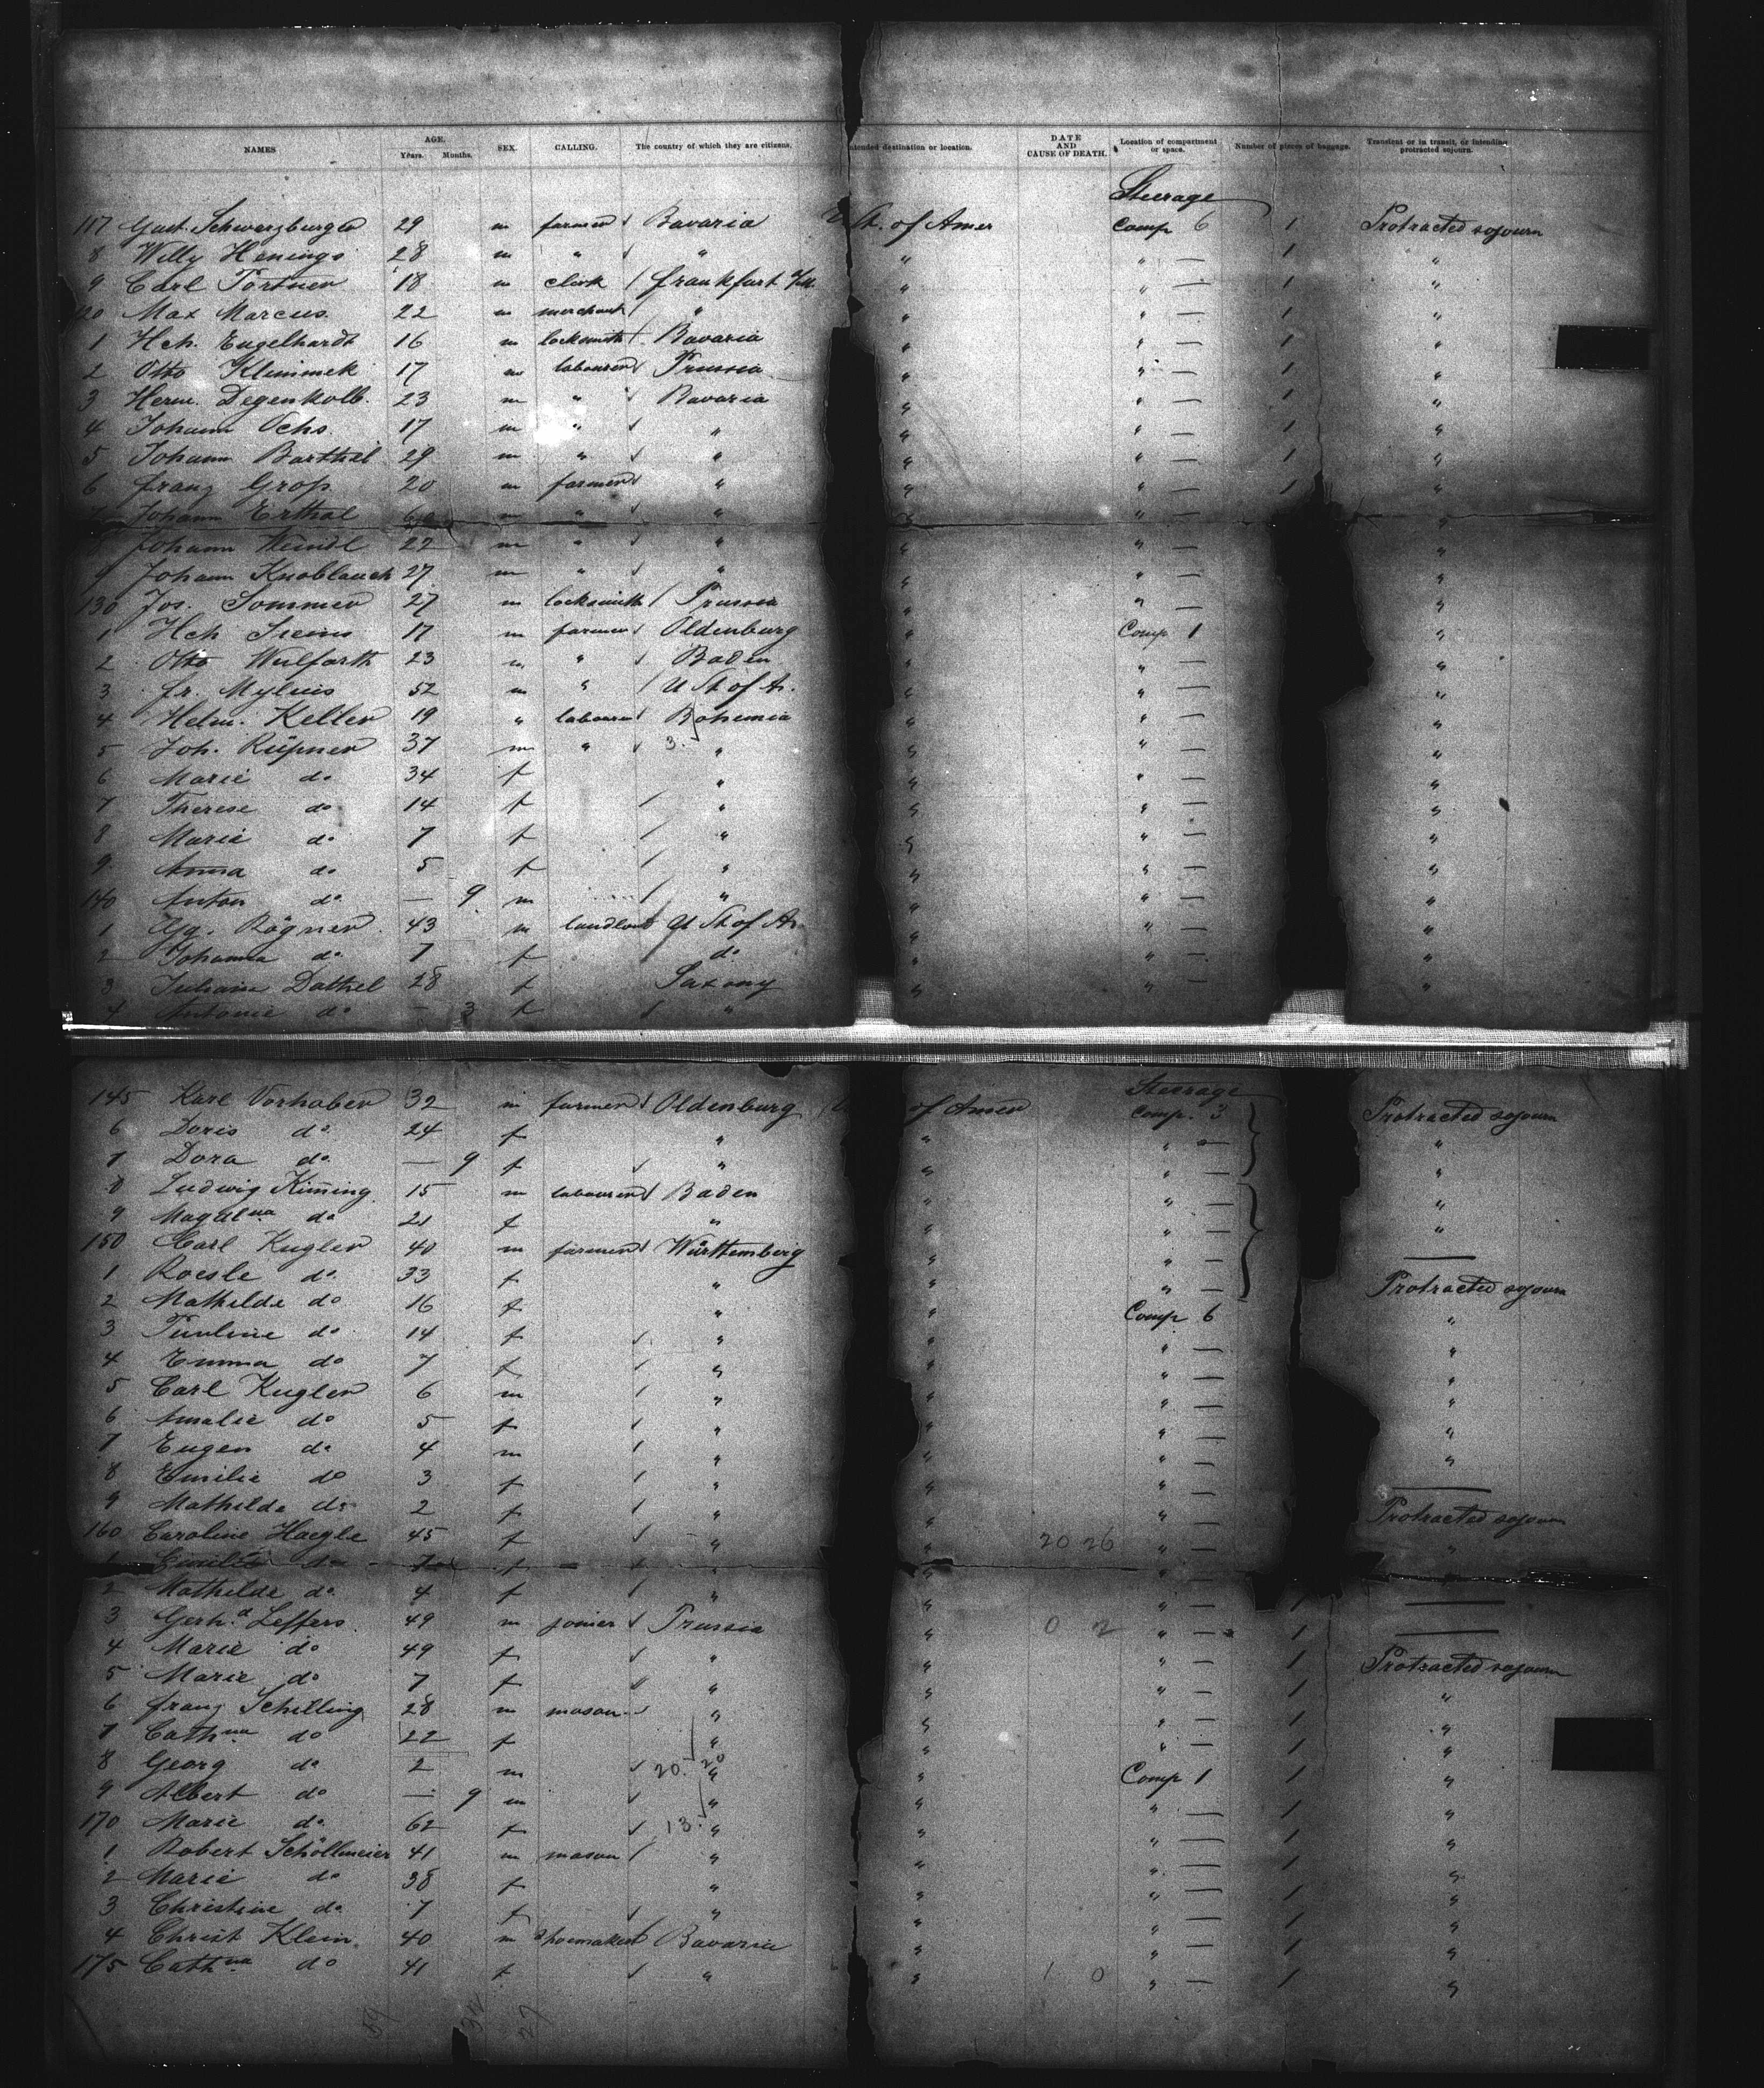 NAMES AGE. Years. Months. SEX. CALLING. The country of which they are citizens. Intended destination or location. DATE AND CAUSE OF DEATH. Location of compartment or space. Number of pieces of baggage. Transient or in transit, or intending protracted sojourn.
Steerage
117 Gust. Schwarzburger 29 m farmer Bavaria St. of Amer Comp 6 1 Protracted sojourn
8 Willy Hennings 28 m " " " " — 1 "
9 Carl Törtner 18 m clerk Frankfurt a/M. " " — 1 "
120 Max Marcus 22 m merchant " " " — 1 "
1 Hch. Engelhardt 16 m locksmith Bavaria " " — 1 "
2 Otto Klimmek 17 m labourer Prussia " " — 1 "
3 Herm. Degenkolb. 23 m " Bavaria " " — 1 "
4 Johann Ochs. 17 m " " " " — 1 "
5 Johann Barthel 29 m " " " " — 1 "
6 Franz Groß 20 m farmer " " " — 1 "
Johann Erthal m " " " " — "
8 Johann Weindl 22 m " " " " — "
9 Johann Knoblauch 27 m " " " " — "
130 Jos. Sommer 27 m locksmith Prussia " " — "
1 Hch 17 m farmer Oldenburg " Comp 1 "
2 Otto Wulfarth 23 m " Baden " " — "
3 Fr. Mylius 52 m " U St of A. " " — "
4 Helm. Keller 19 " labourer Bohemia " " — "
5 Joh. Rüpner 37 m " 3. " " " — "
6 Marie do 34 f " " " — "
7 Therese do 14 f " " " — "
8 Marie do 7 f " " " — "
9 Anna do 5 f " " " — "
140 Anton do — 9 m " " " — "
1 Gg. Rögner 43 m landlord U St of A. " " — "
2 Johanna do 7 f do " " — "
3 Juliana Dathel 28 f Saxony " " — "
4 Antonie do — 3 f "
Steerage
145 Karl Vorhaber 32 m farmer Oldenburg of Amer Comp. 3 Protracted sojourn
6 Doris do 24 f " " " — "
7 Dora do. — 9 f " " " — "
8 Ludwig Kiming 15 m labourer Baden " — "
9 Magdlna do 21 f " " " — "
150 Carl Kugler 40 m farmer Württemberg " " — —
1 Roesle do. 33 f " " " — Protracted sojourn
2 Mathilde do 16 f " " Comp 6 "
3 Pauline do 14 f " " " — "
4 Emma do 7 f " " " — "
5 Carl Kugler 6 m " " " — "
6 Amalie do 5 f " " " — "
7 Eugen do 4 m " " " — "
8 Emilie do 3 f " " " — —
9 Mathilde do 2 f " " " — Protracted sojourn
160 Caroline Haegle 45 f " " 20 26 " — "
1 do 7 f
2 Mathilde do. 4 f " " " — 1 —
3 Gerhd. Leffers. 49 m joiner Prussia " 0 2 " — 1 —
4 Marie do 49 f " " " — 1 Protracted sojourn
5 Marie do 7 f " " " — 1 "
6 Franz Schilling 28 m mason " " " — 1 "
7 Cathna do 22 f " " " — 1 "
8 Georg do 2 m 20. 20 " " Comp 1 1 "
9 Albert do — 9 m " " " — 1 "
170 Marie do. 62 f 13. " " " — 1 "
1 Robert Schöllmeier 41 m mason " " " — 1 "
2 Marie do 38 f " " " — 1 "
3 Christine do. 7 f " " " — 1 "
4 Christ Klein. 40 m shoemaker Bavaria " " — 1 "
175 Cathna do 41 f " " 1 0 " — 1 "
27